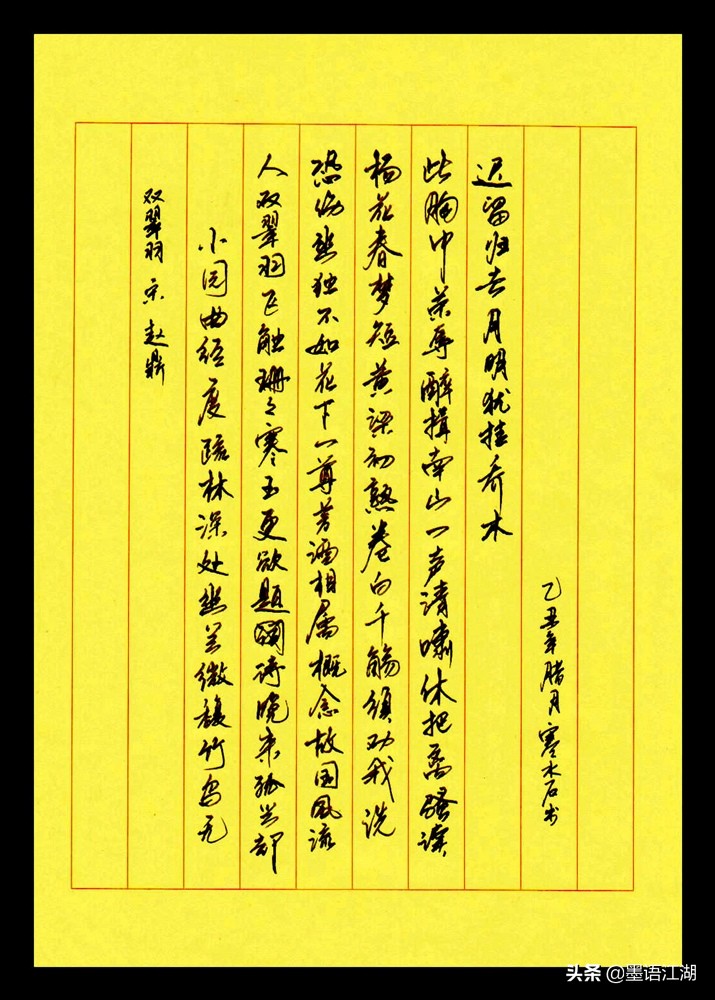 双翠羽 宋 赵鼎
小园曲径度疏林深处幽兰微馥竹坞无
人双翠羽飞触珊々寒玉更欲题诗晚来孤兴却
恐伤幽独不如花下一尊芳酒相属概念故国风流
杨花春梦短黄粱初熟卷白千觞须劝我洗
此胸中荣辱醉揖南山一声清啸休把离骚读
迟留归去月明犹挂乔木
乙丑年腊月 寒水石书
头条 @墨语江湖